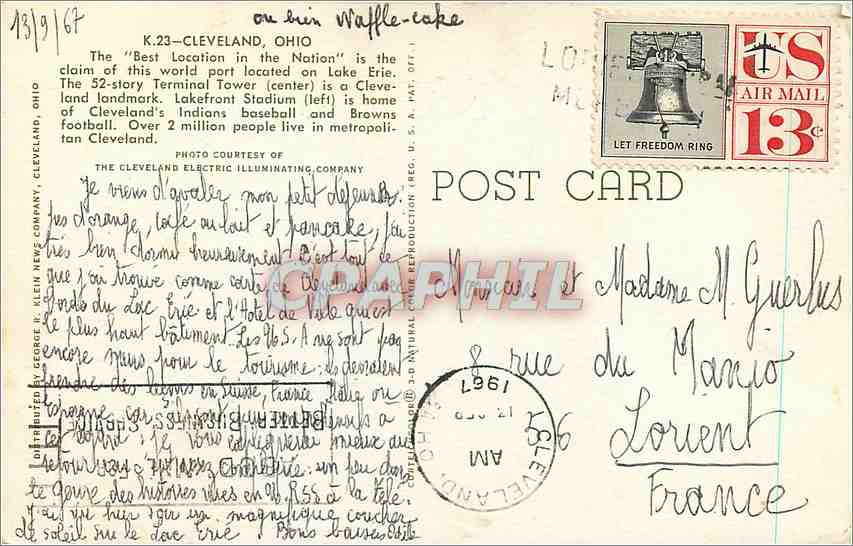 13/9/67
ou bien Waffle-cake
K.23—CLEVELAND, OHIO
The "Best Location in the Nation" is the
claim of this world port located on Lake Erie.
The 52-story Terminal Tower (center) is a Cleve-
land landmark. Lakefront Stadium (left) is home
of Cleveland's Indians baseball and Browns
football. Over 2 million people live in metropoli-
tan Cleveland.
PHOTO COURTESY OF
THE CLEVELAND ELECTRIC ILLUMINATING COMPANY
Je viens d'avaler mon petit déjeuner:
jus d'orange, café au lait et pancake, j'ai
très bien dormi heureusement. C'est tout ce
que j'ai trouvé comme carte de Cleveland avec
bords du Lac Erié et l'Hôtel de Ville qui est
le plus haut bâtiment. Les U.S.A ne sont pas
encore mûrs pour le tourisme: ils devraient
prendre des leçons en Suisse, France, Italie ou
Espagne car
cet égard. Je vous expliquerai mieux au
retour un peu dans
le genre des histoires vues en URSS à la télé.
J'ai hier soir un magnifique coucher
de soleil sur le Lac Erié. Bons baisers
DISTRIBUTED BY GEORGE R. KLEIN NEWS COMPANY, CLEVELAND, OHIO
3-D NATURAL COLOR REPRODUCTION (REG. U. S. A. PAT. OFF.)
POST CARD
LET FREEDOM RING
US
AIR MAIL
13c
CPAPHIL
Monsieur et Madame M. Guerlus
8 rue du Manio
56
Lorient
France
CLEVELAND, OHIO
AM
1967
BETTER BUSINESS